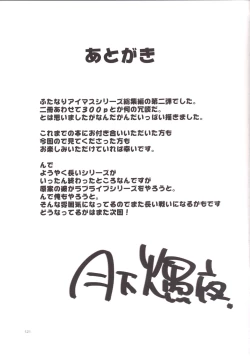 あとがき
ふたなりアイマスシリーズ総集編の第二弾でした。
二冊あわせて300pとか何の冗談だ。
とは思いましたがなんだかんだいっぱい描きました。
これまでの本にお付き合いいただいた方も
今回ので見てくださった方も
お楽しみいただけていれば幸いです。
んで
ようやく長いシリーズが
いったん終わったところなんですが
原案の緬からラフライフシリーズをやろうと。
んで俺もやろうと。
そんな雰囲気になってるのでまた長い戦いになるかもです
どうなってるかはまた次回！
月下燿夜.